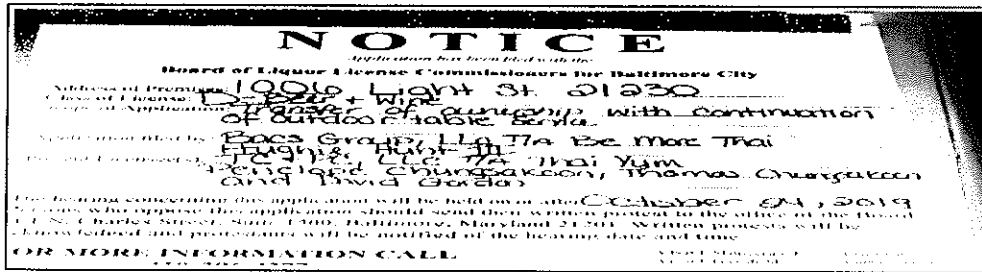 NOTICE
Application has been filed with the
Board of Liquor License Commissioners for Baltimore City
Address of Premise: 1006 Light St. 21230
Class of License: D-Beer + Wine
Type of Application: Transfer of ownership with continuation
of outdoor table service
Application filed by: Bacs Group, LLC T/A Be More Thai
Hughie Hunt III
Present Licensee(s): LLC T/A Thai Yum
Penelope Chungsakoon, Thomas Chungsakoon
and David Gordon
The hearing concerning this application will be held on or after October 24, 2019
Persons who oppose this application should send then written protest to the office of the Board
1 N. Charles Street, Suite 1500, Baltimore, Maryland 21201. Written protests will be
acknowledged and protestants will be notified of the hearing date and time
OR MORE INFORMATION CALL